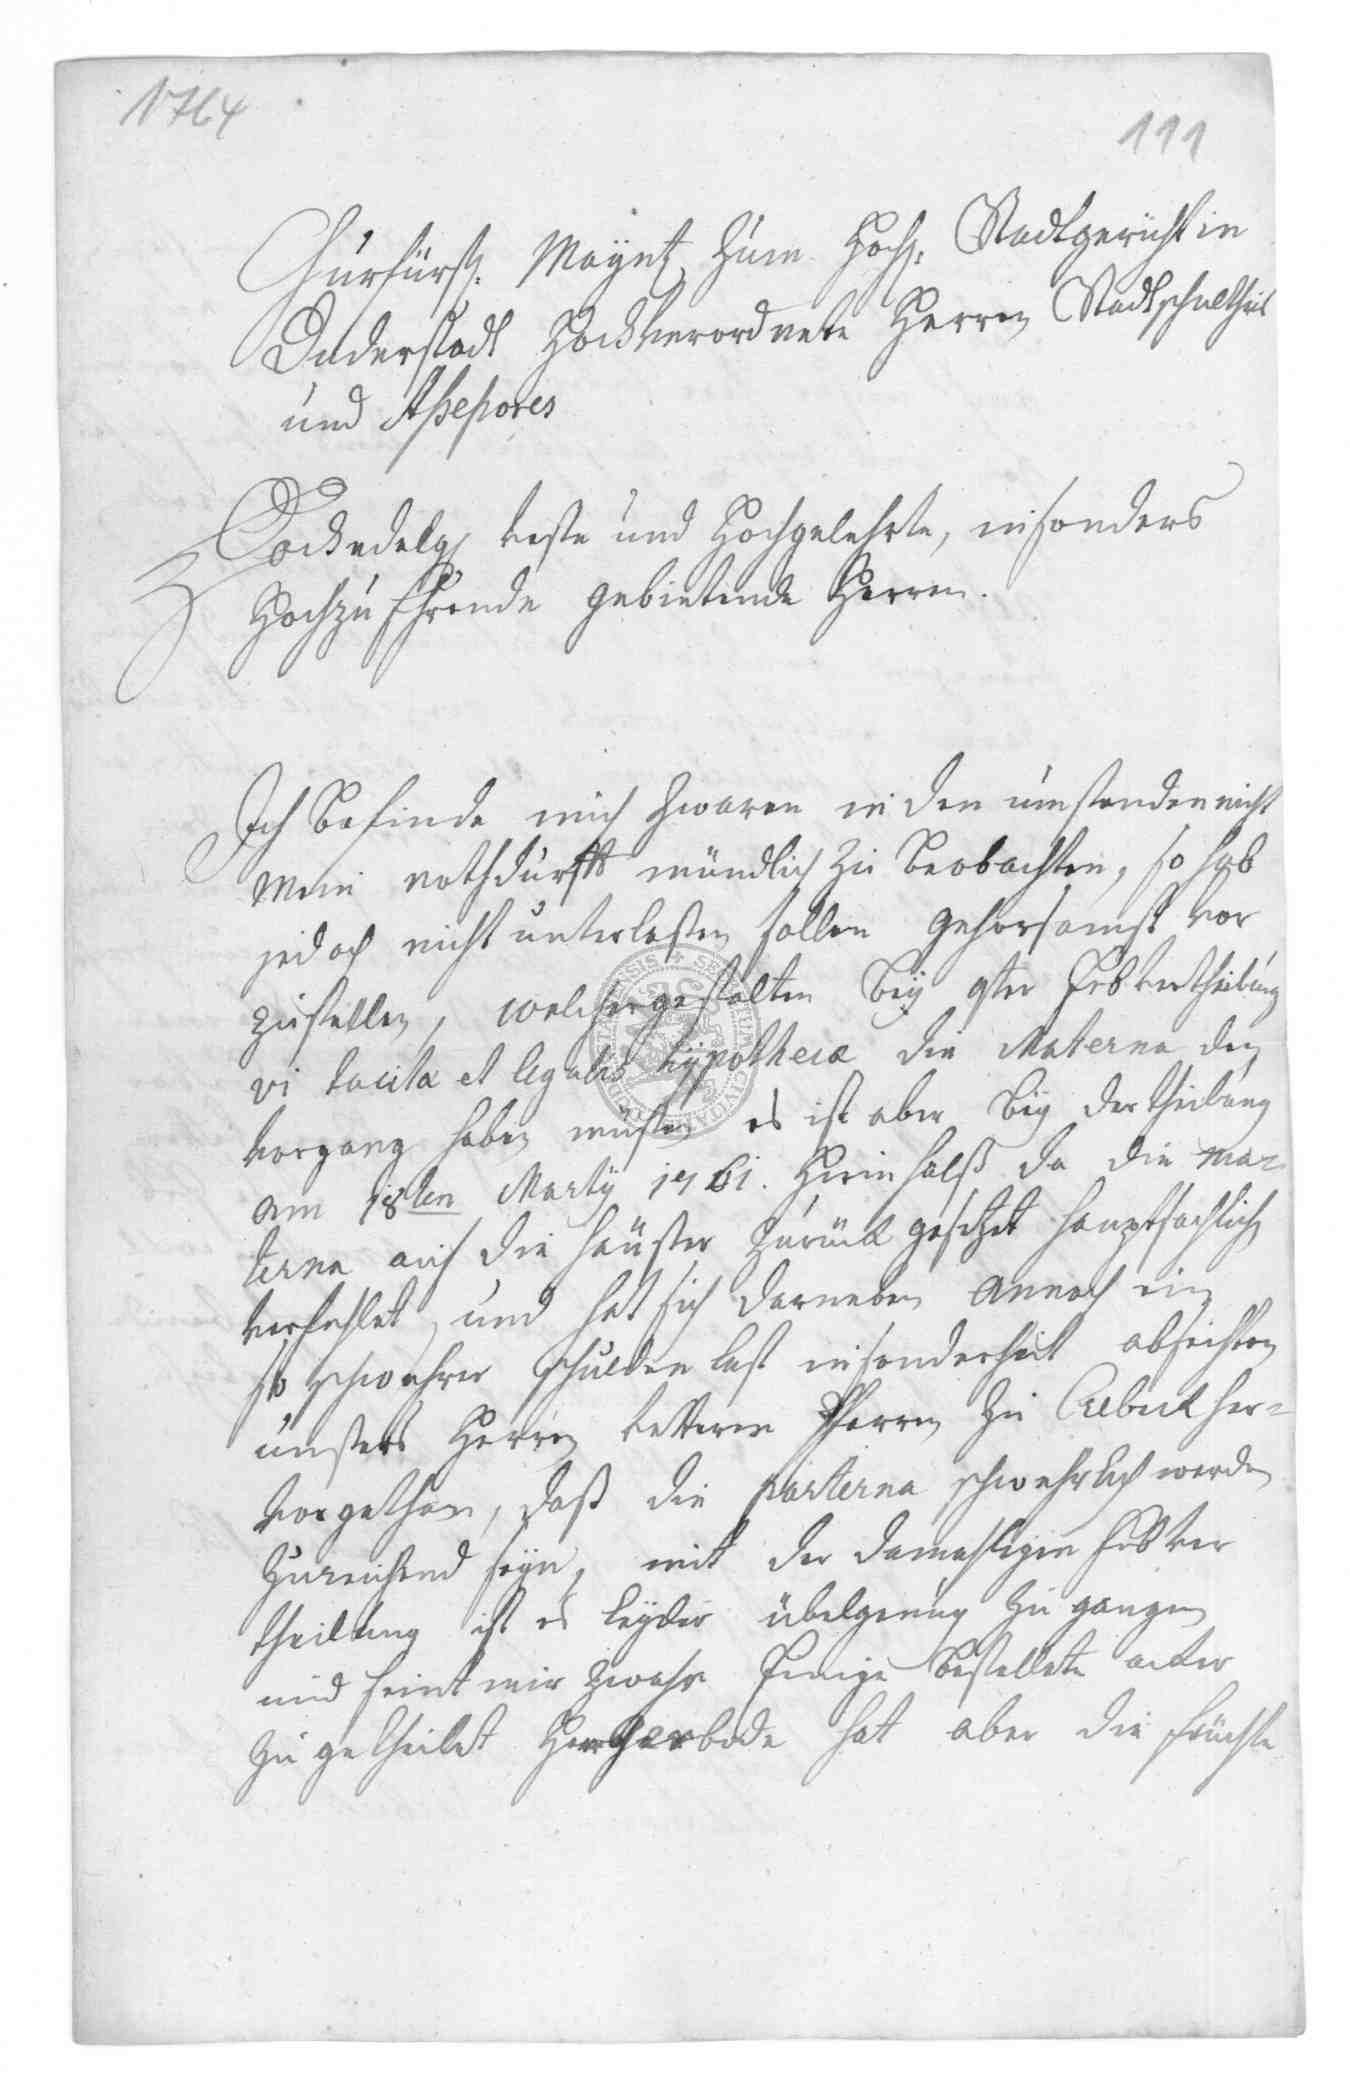 1764
111
Churfürstl. Mayntz. zum Hochl. Stadtgericht in
Duderstadt Hochverordnete Herren Stadtschultheis
und Assessores
Hochedelg. veste und Hochgelehrte, insonders
Hochzu Ehrende gebietende Herren.
Ich befinde mich zwaren in den umstenden nicht
mein nothdurfft mündlich zu beobachten, so hab
jedoch nicht unterlassen sollen gehorsamst vor
zustellen, welchergestalten bey der Erbvertheilung
vi tacitæ et legalis hypothecæ die Materna den
vorgang haben müssen es ist aber bey der theilung
am 18ten Martij 1761. hierin falß da die ma=
terna auf die häusser zurück gesetzet hauptsachlich
verfehlet, und hat sich darneben annoch ein
so schwehrer schulden last insonderheit abseithen
unsers Herrn vetteren Pfarrern zu Crebeck her=
vorgethan, daß die paterna schwehrlich werden
zureichend seyn, mit der damahligen Erbver
theilung ist es leyder übelgenug zu gangen
und seint mir zwahr Einige bestellete acker
zu getheilet Herr Gerbode hat aber die früchte